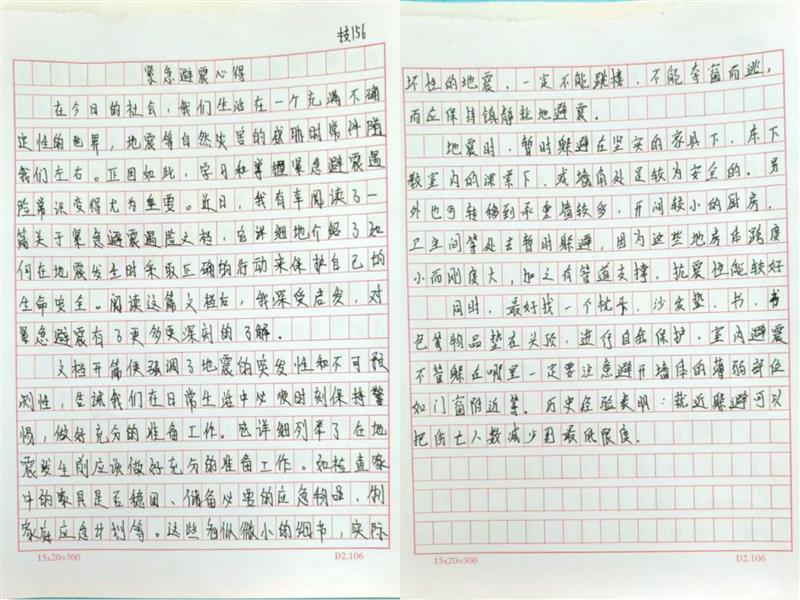 技156
紧急避震心得
在今日的社会，我们生活在一个充满不确
定性的世界，地震等自然灾害的威胁时常伴随
我们左右。正因如此，学习和掌握紧急避震避
险常识变得尤为重要。近日，我有幸阅读了一
篇关于紧急避震避险文档，它详细地介绍了如
何在地震发生时采取正确的行动来保护自己的
生命安全。阅读这篇文档后，我深受启发，对
紧急避震有了更多更深刻的了解。
文档开篇便强调了地震的突发性和不可预
测性，告诫我们在日常生活中必须时刻保持警
惕，做好充分的准备工作。它详细列举了在地
震发生前应该做好充分的准备工作。如检查家
中的家具是否稳固、储备必要的应急物品、制
家庭应急计划等。这些看似微小的细节，实际
15x20=300
D2.106
坏性的地震，一定不能跳楼，不能夺窗而逃，
而应保持镇静就地避震。
地震时，暂时躲避在坚实的家具下、床下
教室内的课桌下、或墙角处是较为安全的。另
外也可转移到承重墙较多，开间较小的厨房、
卫生间等处去暂时躲避，因为这些地房体跨度
小而刚度大，加之有管道支撑，抗震性能较好
同时，最好找一个枕头、沙发垫、书、书
包等物品垫在头顶，进行自我保护。室内避震
不管躲在哪里一定要注意避开墙体的薄弱部位
如门窗附近等。历史经验表明：就近躲避可以
把伤亡人数减少到最低限度。
15x20=300
D2.106